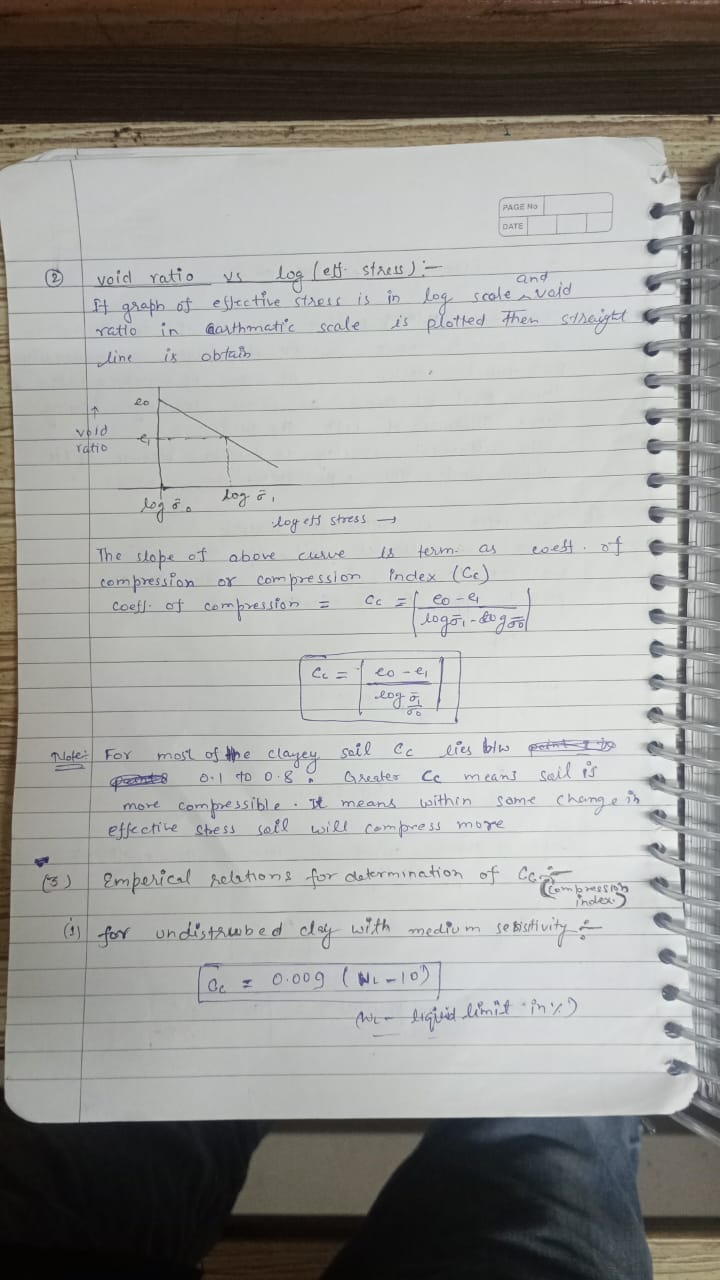 PAGE No
DATE
② void ratio vs log (eff. stress) :-
If graph of effective stress is in log scale and void
ratio in aarthmatic scale is plotted then straight
line is obtain
e₀
↑
void
ratio
e₁
log σ̄₀ log σ̄₁
log eff stress →
The slope of above curve is term. as coeff. of
compression or compression index (Cc)
coeff. of compression = Cc = | e₀ - e₁ / log σ̄₁ - log σ̄₀ |
Cc = | e₀ - e₁ / log σ̄₁/σ̄₀ |
Note:- For most of the clayey soil Cc lies b/w
0.1 to 0.8. Greater Cc means soil is
more compressible. It means within same change in
effective stress soil will compress more
(3) Emperical relations for determination of Cc :-
(compression
index)
(i) for undistrubed clay with medium sesistivity :-
Cc = 0.009 (WL - 10)
(WL - liquid limit in %)